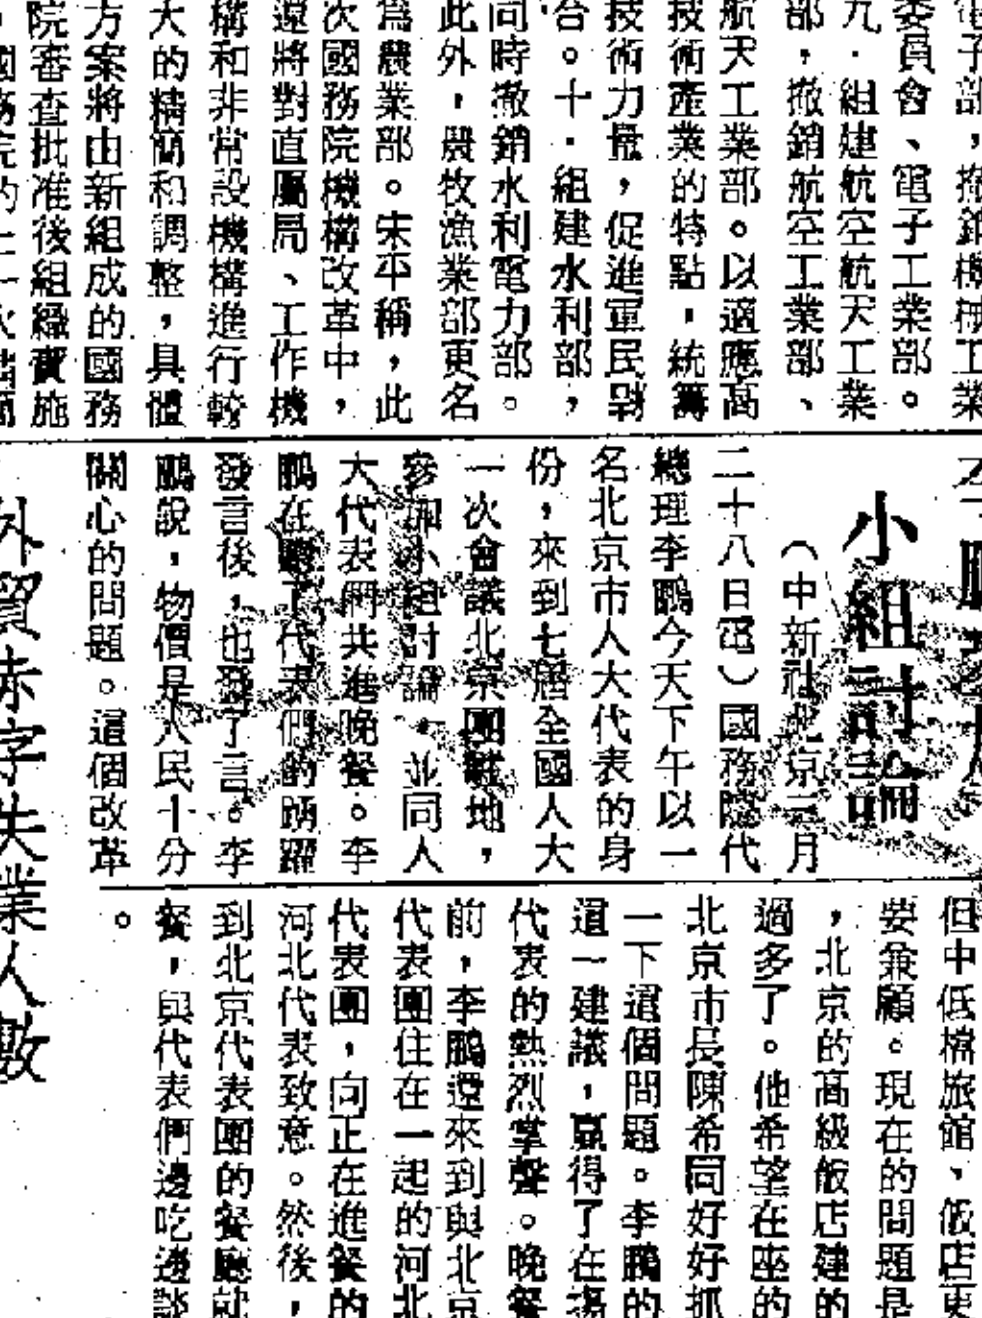 電子部，撤銷機械工業
委員會、電子工業部。
九．組建航空航天工業
部，撤銷航空工業部、
航天工業部。以適應高
技術產業的特點，統籌
技術力量，促進軍民
合。十．組建水利部，
同時撤銷水利電力部。
此外，農牧漁業部更名
為農業部。宋平稱，此
次國務院機構改革中，
還將對直屬局、工作機
構和非常設機構進行較
大的精簡和調整，具體
方案將由新組成的國務
院審查批准後組織實施
小組討論
（中新社北京三月
二十八日電）國務院代
總理李鵬今天下午以一
名北京市人大代表的身
份，來到七屆全國人大
一次會議北京團駐地，
參加小組討論，並同人
大代表們共進晚餐。李
鵬在聽了代表們的踴躍
發言後，也發了言。李
鵬說，物價是人民十分
關心的問題。這個改革
但中低檔旅館、飯店更
要兼顧。現在的問題是
，北京的高級飯店建的
過多了。他希望在座的
北京市長陳希同好好抓
一下這個問題。李鵬的
這一建議，贏得了在場
代表的熱烈掌聲。晚餐
前，李鵬還來到與北京
代表團住在一起的河北
代表團，向正在進餐的
河北代表致意。然後，
到北京代表團的餐廳就
餐，與代表們邊吃邊談
。
外貿赤字失業人數